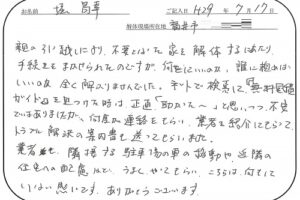 お名前 堀 昌幸 ご記入日 H29年7月17日
解体現場所在地 福井市
親の引越しにより、不要となった家を解体するにあたり、
手続をまかせられたのですが、何をどうしていいのか、誰に頼めば
いいのか、全く解りませんでした。ネットで検索して「無料
ガイド」を見つけた時は正直「助かった〜」と思いつつ、不安
ではありましたが、何度か連絡をもらい、業者を紹介してもらって、
トラブル解決の案内書も送ってもらいました。
業者も、隣接する駐車場の車の移動や近隣の
住宅への配慮など、うまくやってもらい、こちらは何もして
いない思いです。ありがとうございます